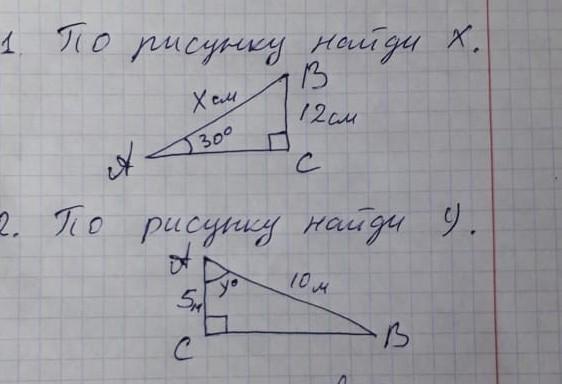 1. По рисунку найди x.
B
x см
12 см
30°
A
C
2. По рисунку найди y.
A
y°
10 м
5 м
C
B